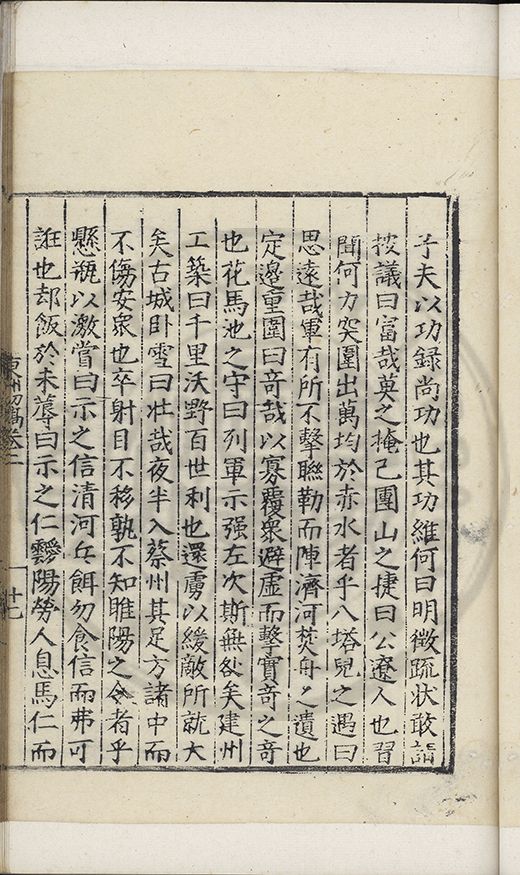 予夫以功録尚功也其功維何曰明徵疏状敢詣
披議曰富哉莫之掩已團山之捷曰公遼人也習
聞何力突圍出萬均於赤水者乎八塔兒之遇曰
思遠哉軍有所不擊聯勒而陳濟河焚舟之遺也
定邊重圍曰竒哉以寡覆衆避虛而擊實竒之竒
也花馬池之守曰列軍示强左次斯無咎矣建州
工築曰千里沃野百世利也還虜以緩敵所就大
矣古城卧雪曰壮哉夜半入蔡州其足方諸中而
不傷安衆也卒射目不移孰不知睢陽之令者乎
懸瓶以激賞曰示之信清河乓餌勿食信而弗可
誑也却飯於未蓐曰示之仁靉陽勞人息馬仁而
十七